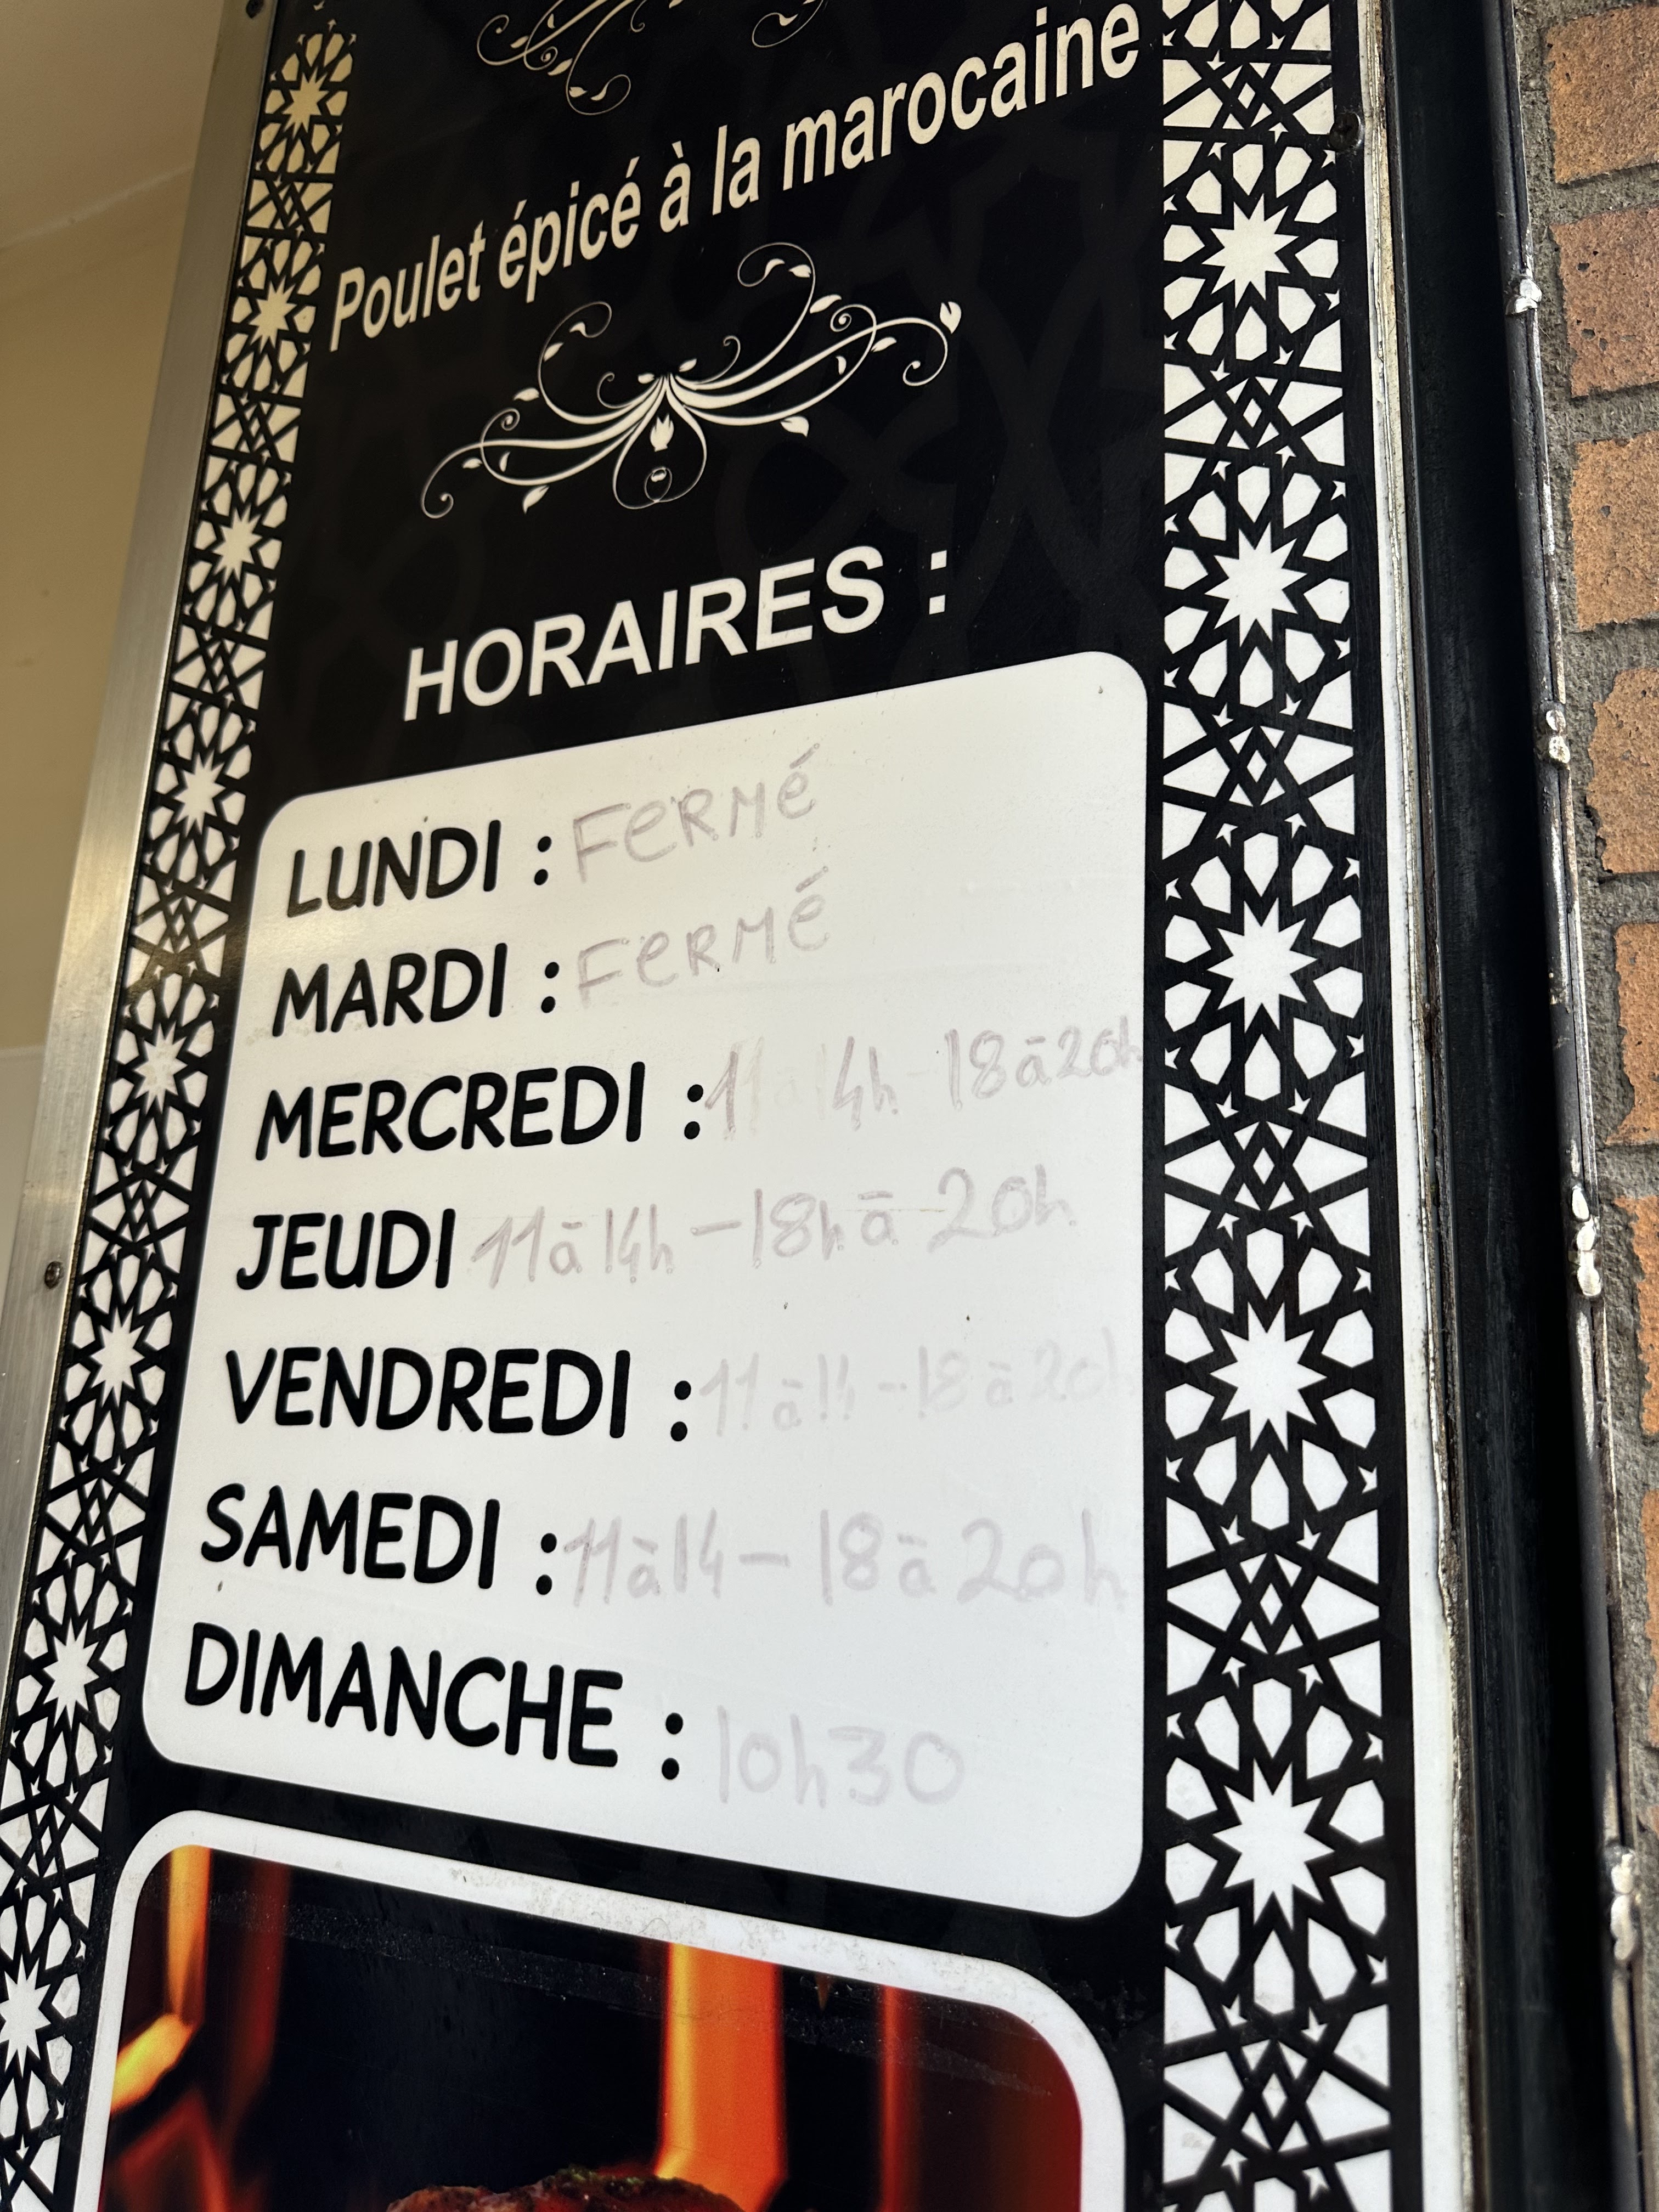 Poulet épicé à la marocaine
HORAIRES :
LUNDI : FERMÉ
MARDI : FERMÉ
MERCREDI : 11 à 14h 18 à 20h
JEUDI 11 à 14h - 18h à 20h
VENDREDI : 11 à 14 - 18 à 20h
SAMEDI : 11 à 14 - 18 à 20h
DIMANCHE : 10h30